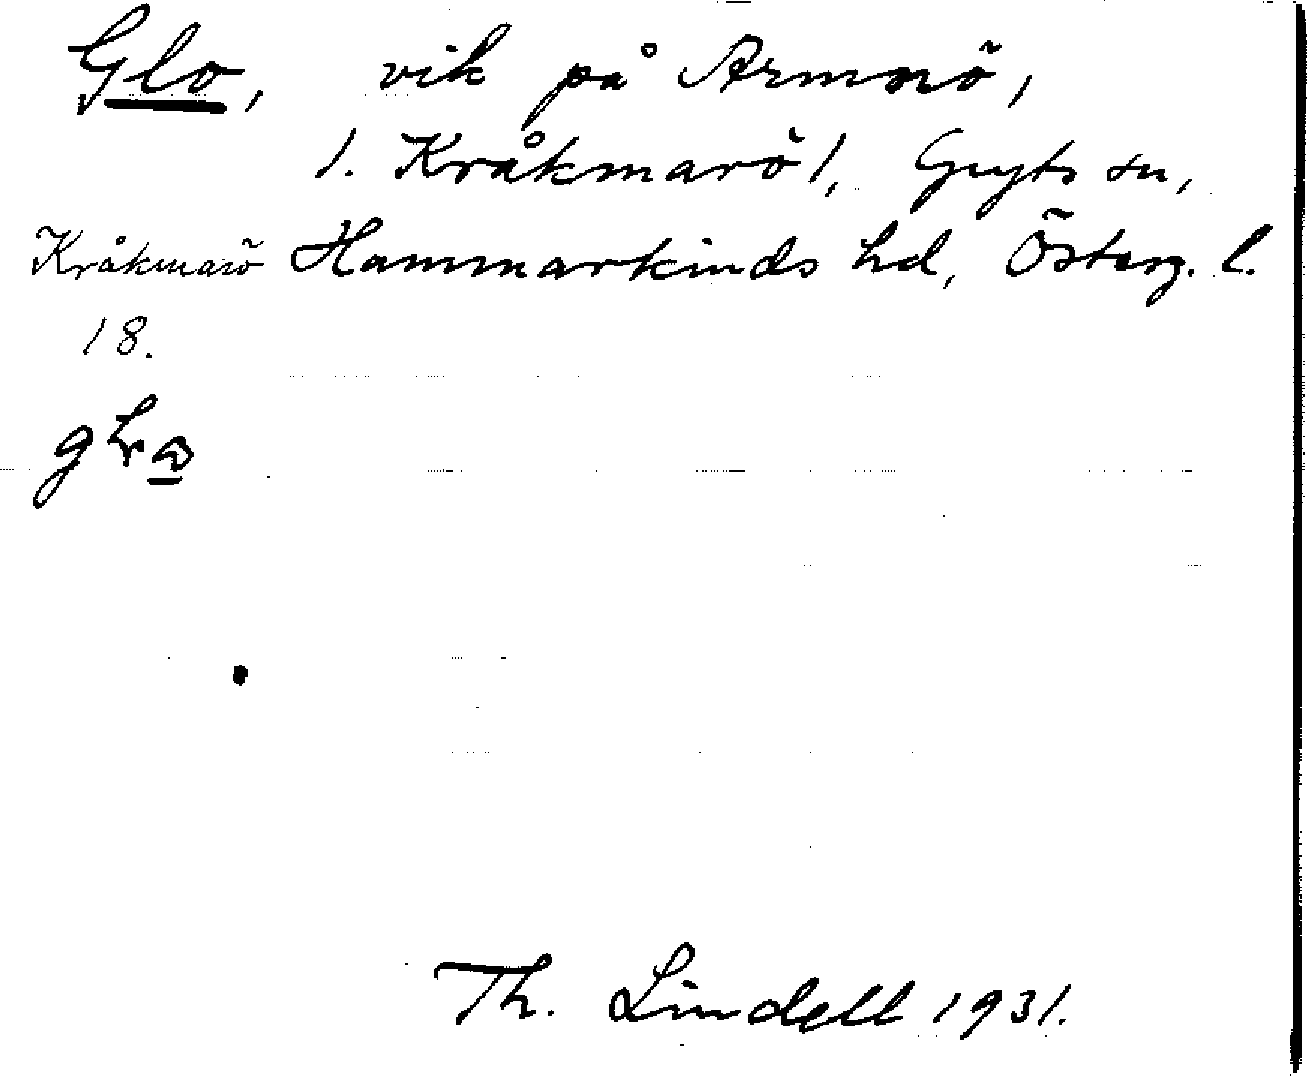 Glo, vik på Armnö,
1. Kråkmarö 1, Gryts sn,
Kråkmarö Hammarkinds hd, Österg. l.
18.
Th. Lindell 1931.